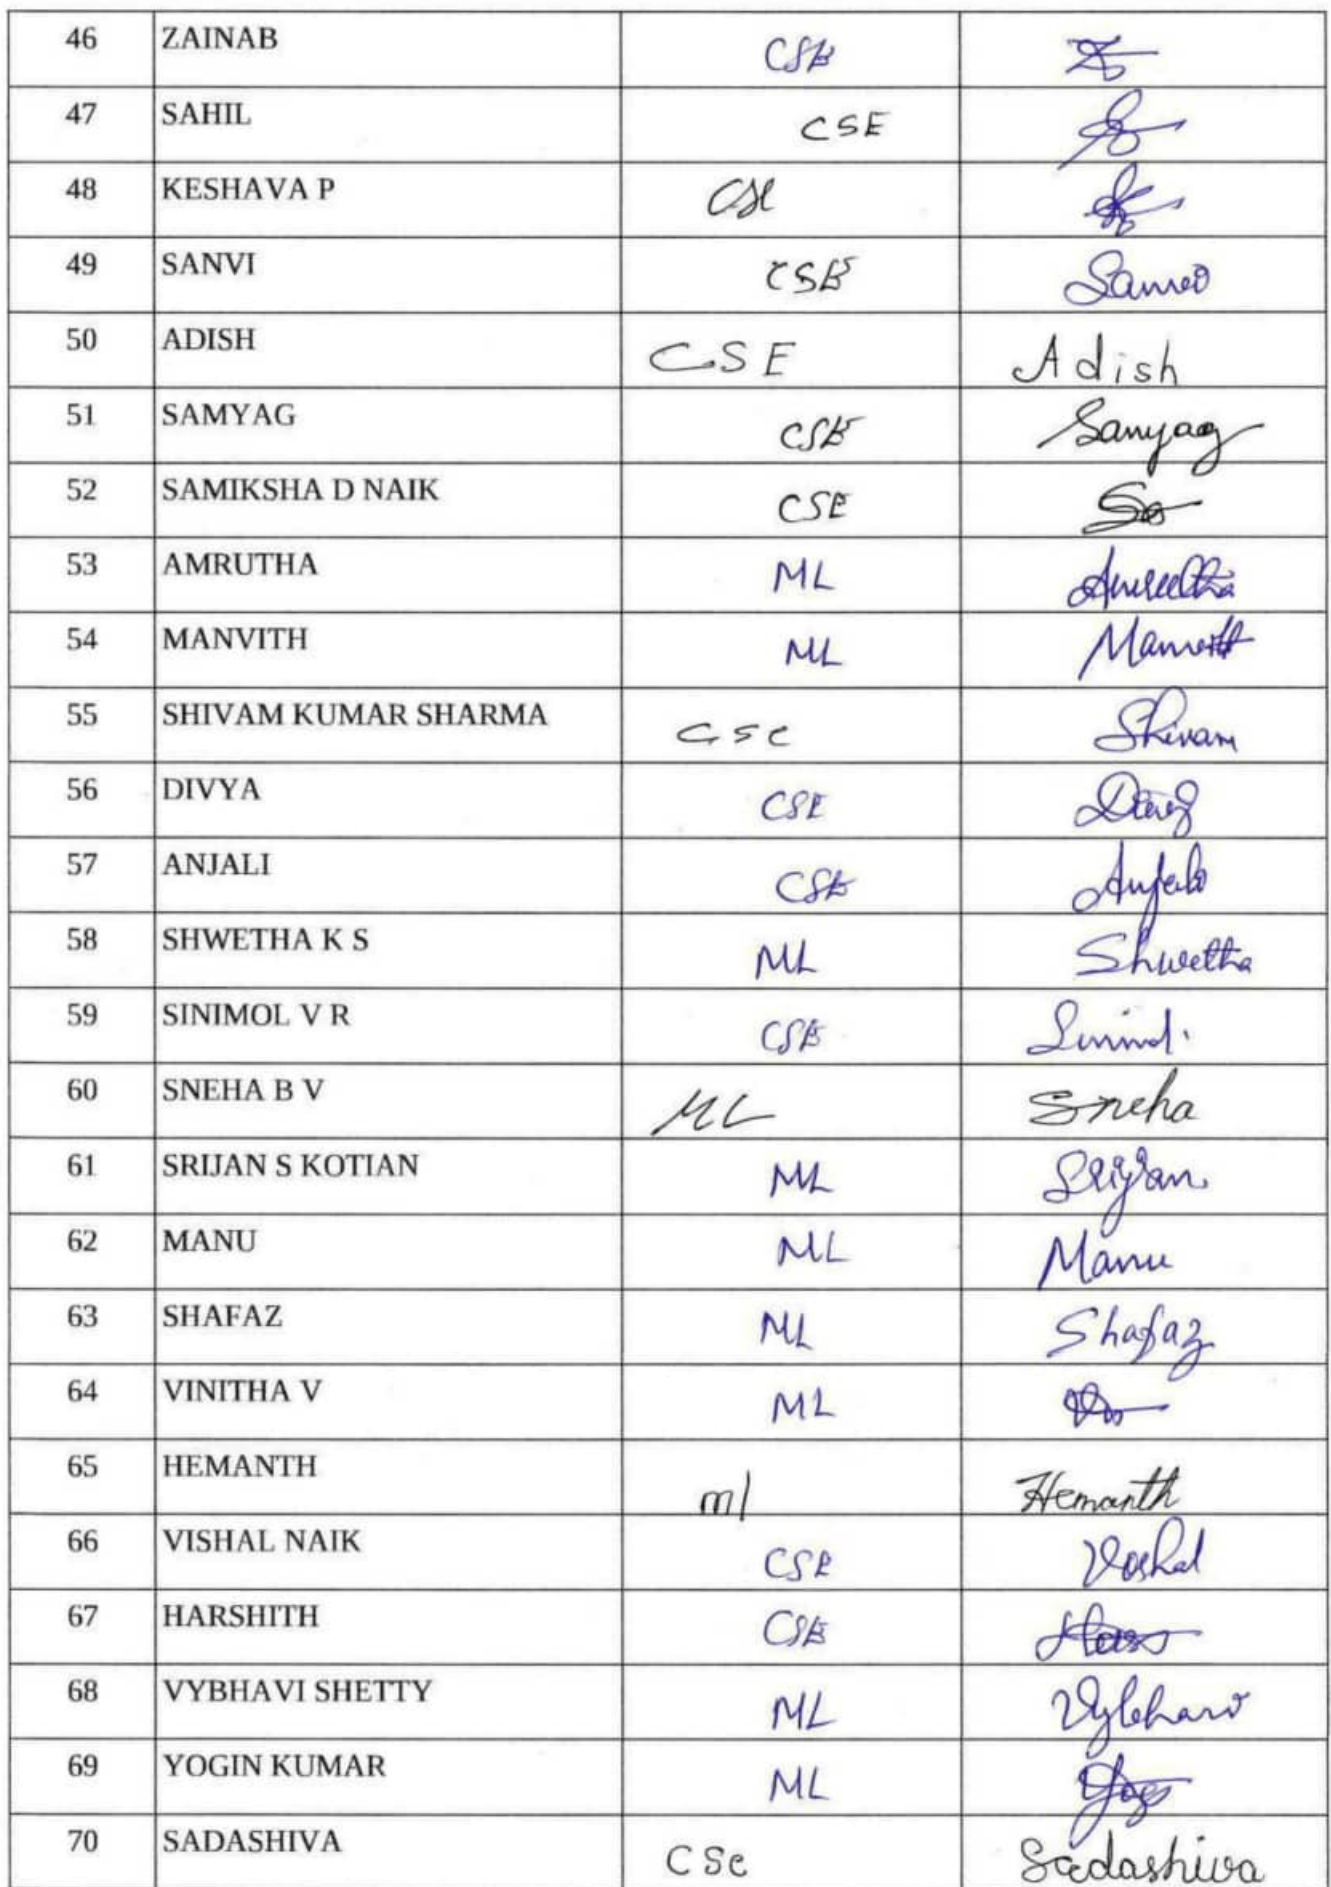 46 ZAINAB CSE
47 SAHIL CSE
48 KESHAVA P CSE
49 SANVI CSE Sanvi
50 ADISH CSE Adish
51 SAMYAG CSE Samyag
52 SAMIKSHA D NAIK CSE
53 AMRUTHA ML Amrutha
54 MANVITH ML Manvith
55 SHIVAM KUMAR SHARMA CSe Shivam
56 DIVYA CSE
57 ANJALI CSE Anjali
58 SHWETHA K S ML Shwetha
59 SINIMOL V R CSE
60 SNEHA B V ML Sneha
61 SRIJAN S KOTIAN ML Srijan
62 MANU ML Manu
63 SHAFAZ ML Shafaz
64 VINITHA V ML
65 HEMANTH ml Hemanth
66 VISHAL NAIK CSE Vishal
67 HARSHITH CSE
68 VYBHAVI SHETTY ML Vybhavi
69 YOGIN KUMAR ML
70 SADASHIVA CSe Sadashiva